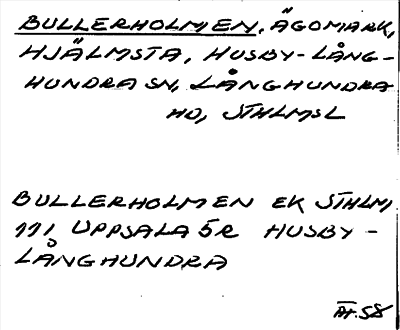 BULLERHOLMEN, ÄGOMARK,
HJÄLMSTA, HUSBY-LÅNG-
HUNDRA SN, LÅNGHUNDRA
HD, STHLMSL
BULLERHOLMEN EK STHLM
111 UPPSALA 5R HUSBY-
LÅNGHUNDRA
58